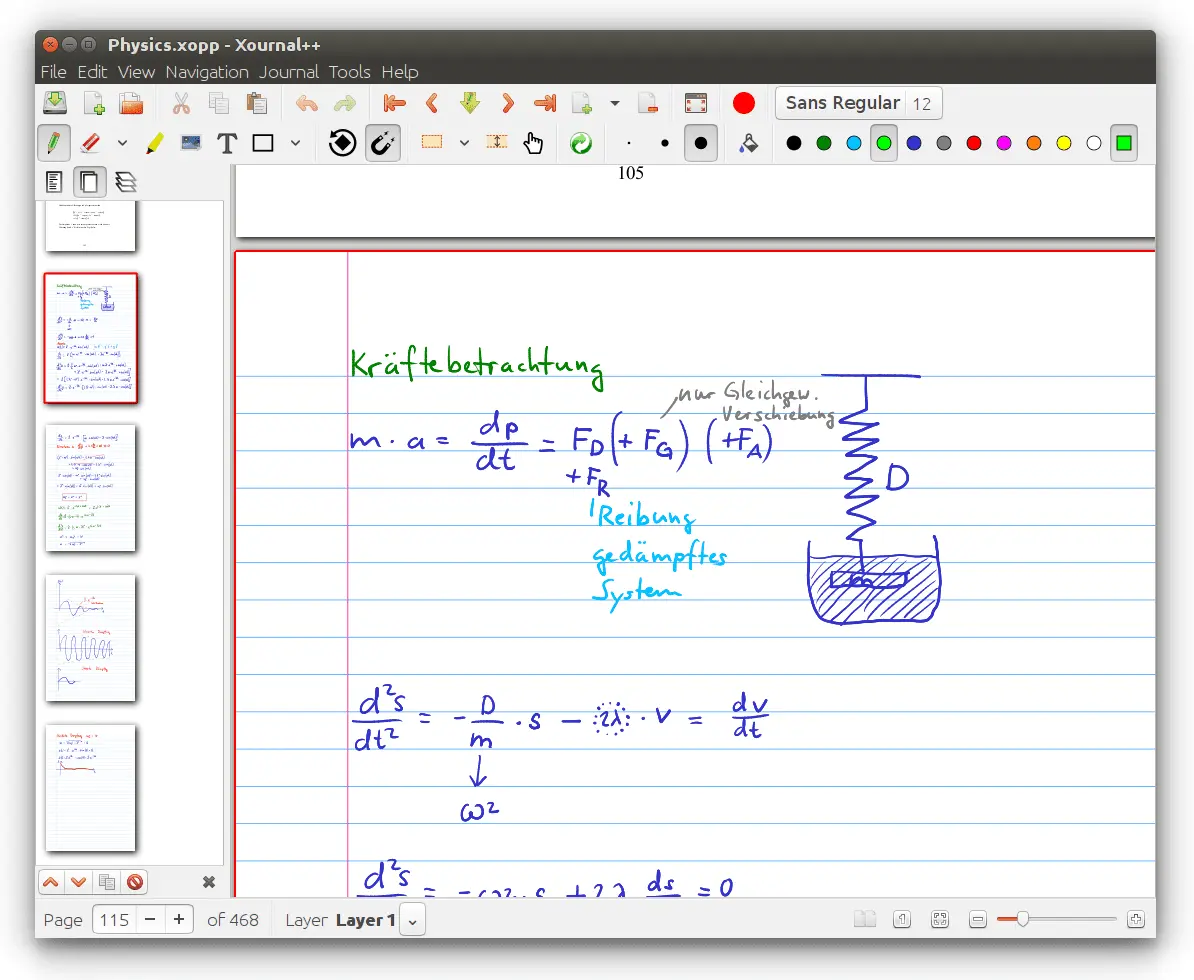 Physics.xopp - Xournal++
File Edit View Navigation Journal Tools Help
Sans Regular 12
105
Kräftebetrachtung
nur Gleichgew.
Verschiebung
m · a = dp/dt = F_D (+ F_G) (+F_A)
+ F_R
D
Reibung
gedämpftes
System
m
d²s/dt² = - D/m · s - 2λ · v = dv/dt
↓
ω²
d²s = -ω² · s + 2λ ds = 0
Page 115 - + of 468 Layer Layer 1